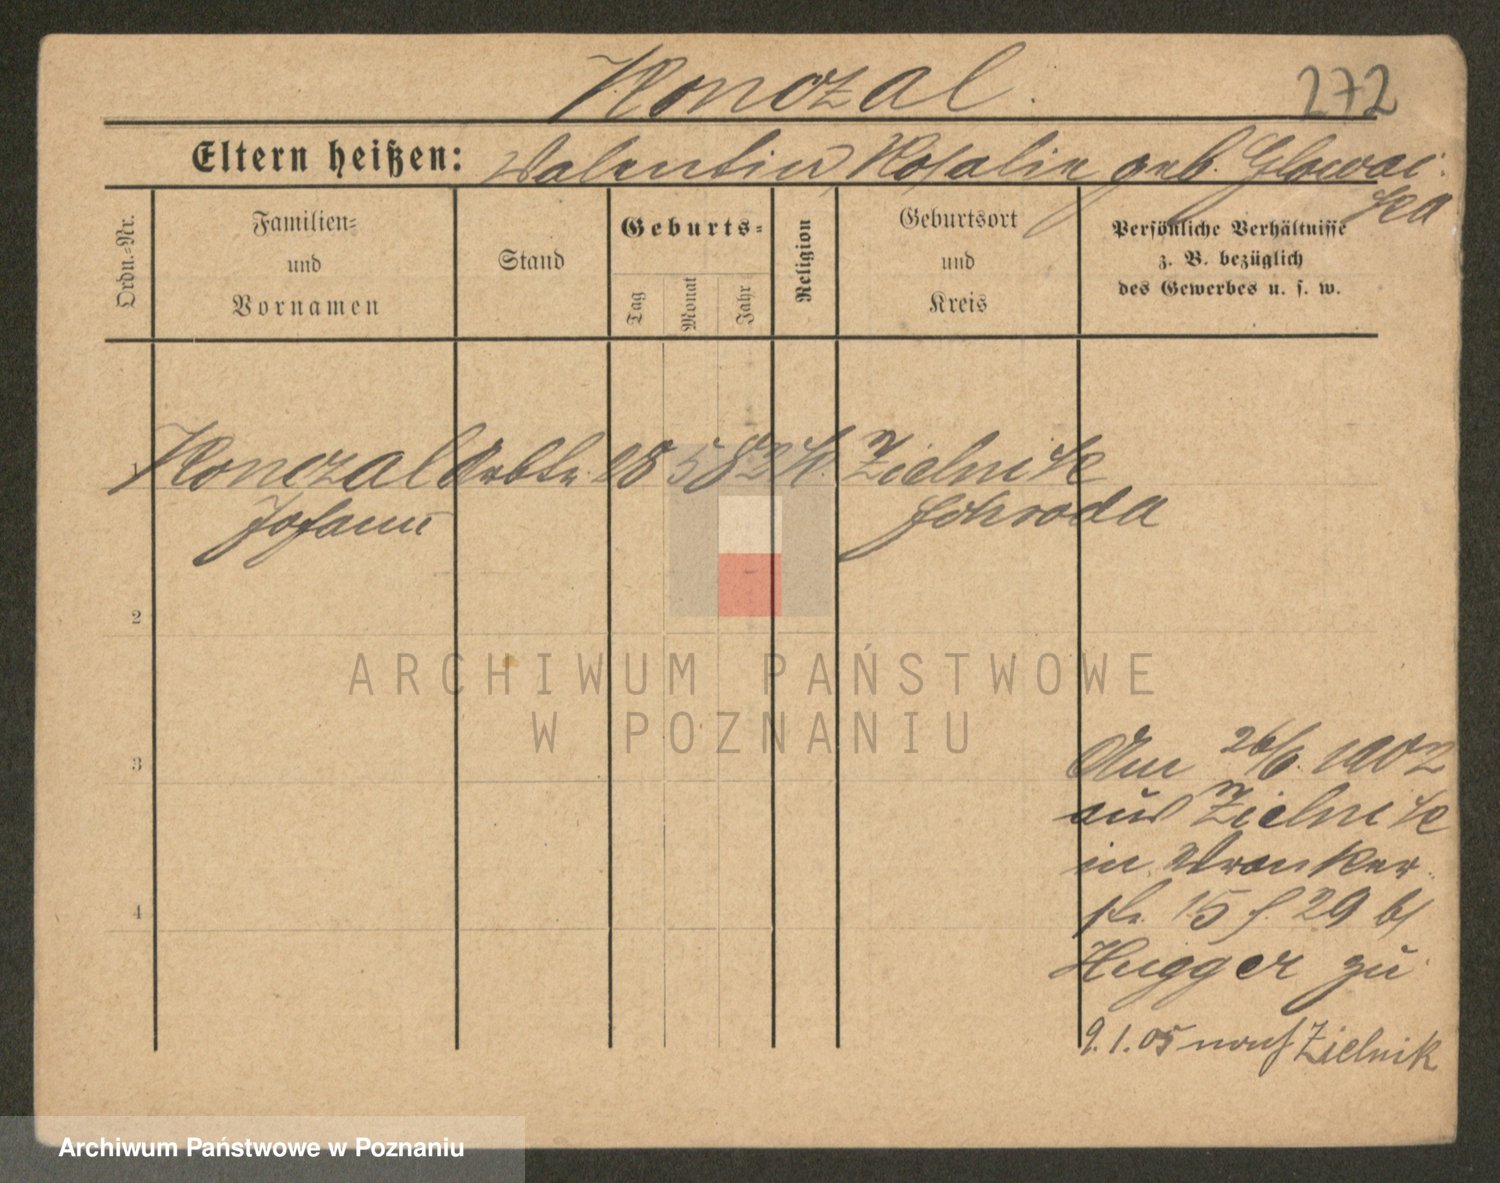 Konczal.
272
Eltern heißen: Valentin, Rosalie geb. Glowac-
ka
Ordn.-Nr.
Familien-
und
Vornamen
Stand
Geburts-
Tag
Monat
Jahr
Religion
Geburtsort
und
Kreis
Persönliche Verhältnisse
z. B. bezüglich
des Gewerbes u. s. w.
1 Konczal Arbtr. 28 5 82 K. Zielnik
Johann Schroda
2
ARCHIWUM PAŃSTWOWE
W POZNANIU
3
Am 26/6. 1902
aus Zielnik
in Wronker-
str. 15 f. 29 b/
4
Hugger zu
9.1.05 nach Zielnik
Archiwum Państwowe w Poznaniu